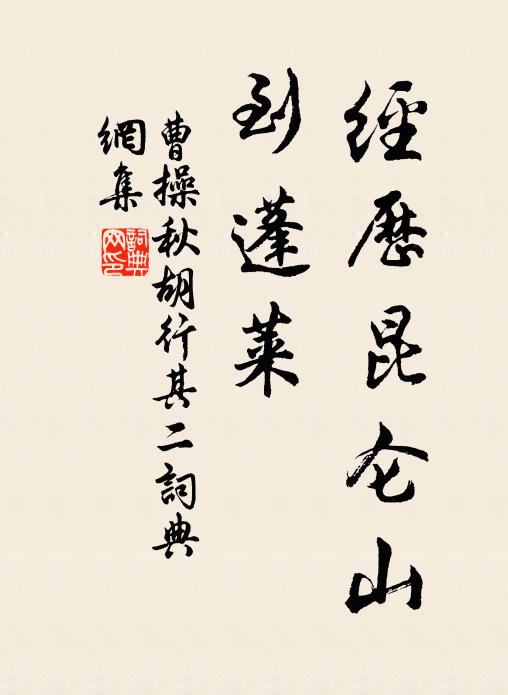 經歷昆仑山
到蓬萊
曹操秋胡行其二詞典
網集
詞典
网印